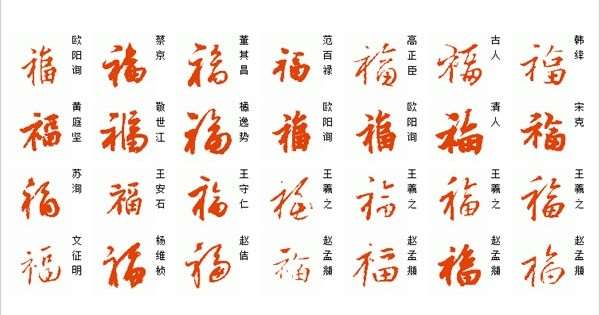 福 欧阳询 福 蔡京 福 董其昌 福 范百禄 福 高正臣 福 古人 福 韩绛
福 黄庭坚 福 敬世江 福 橘逸势 福 欧阳询 福 欧阳询 福 清人 福 宋克
福 苏洵 福 王安石 福 王守仁 福 王羲之 福 王羲之 福 王羲之 福 王羲之
福 文征明 福 杨维桢 福 赵佶 福 赵孟頫 福 赵孟頫 福 赵孟頫 福 赵孟頫